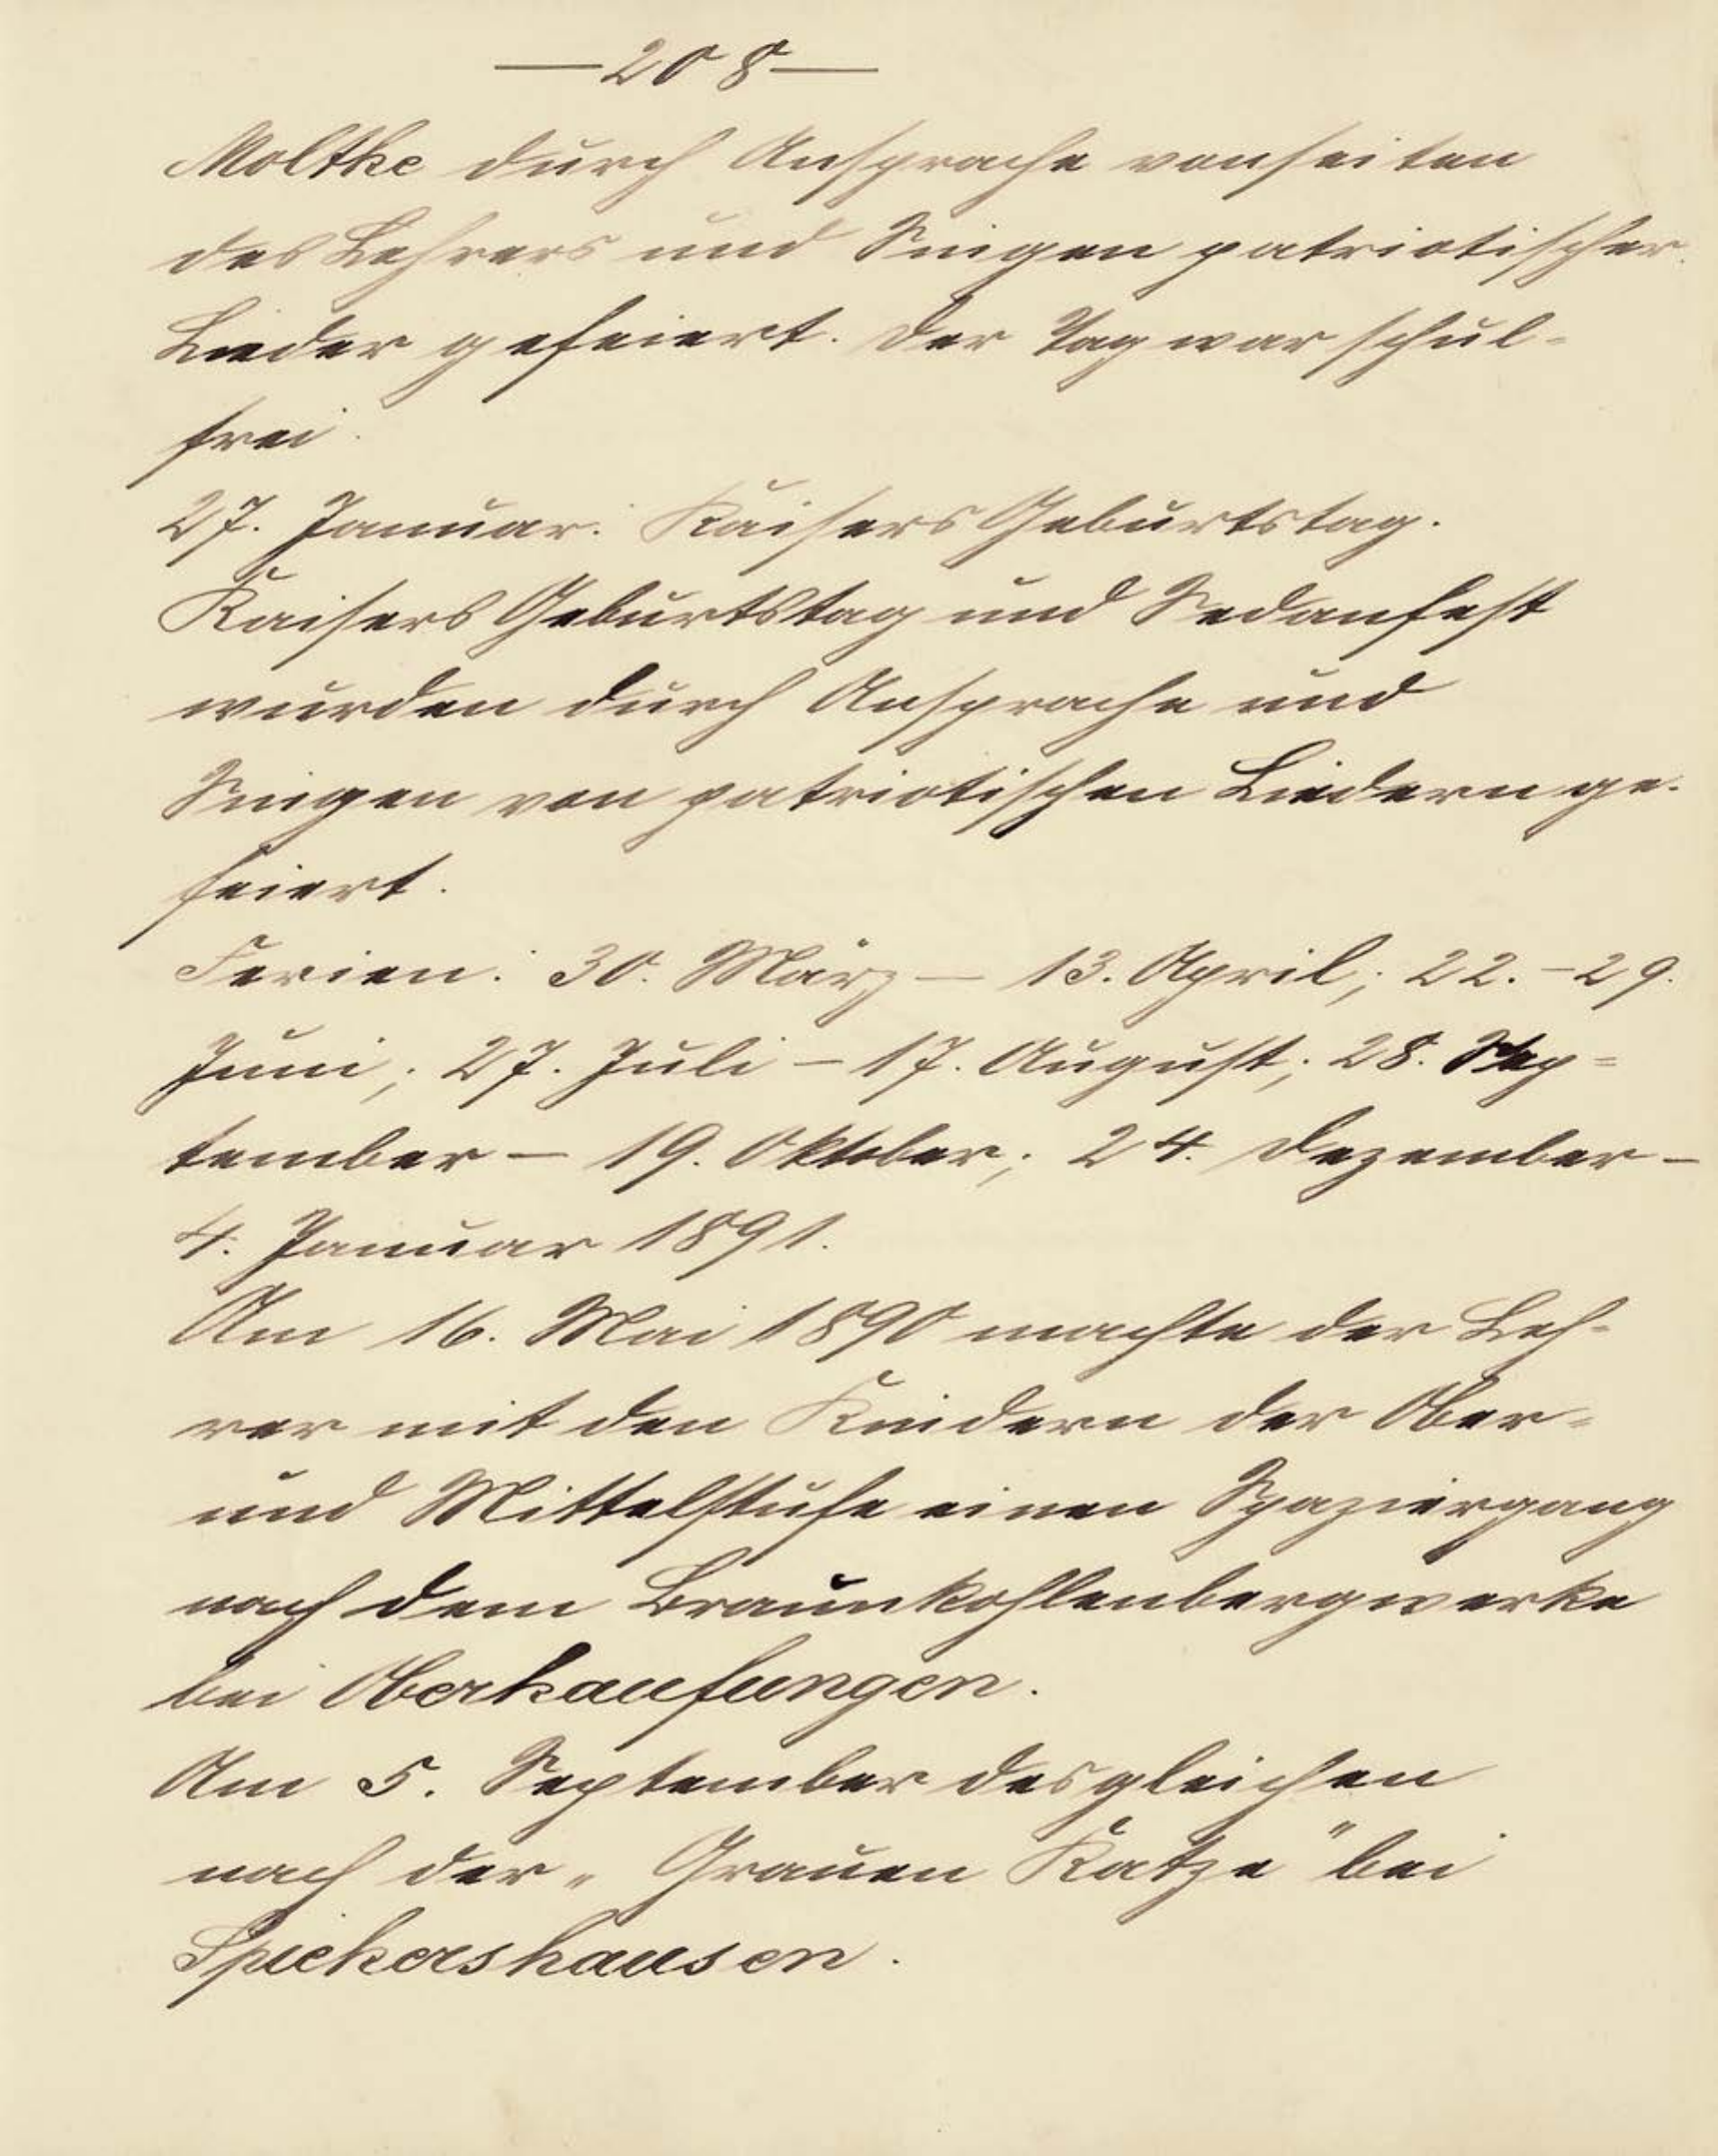 — 208 —
Moltke durch Ansprache vonseiten
des Lehrers und Singen patriotischer
Lieder gefeiert. Der Tag war schul-
frei.
27. Januar: Kaisers Geburtstag.
Kaisers Geburtstag und Sedanfest
wurden durch Ansprache und
Singen von patriotischen Liedern ge-
feiert.
Ferien: 30. März — 13. April; 22. – 29.
Juni; 27. Juli – 17. August; 28. Sep-
tember – 19. Oktober; 24. Dezember –
4. Januar 1891.
Am 16. Mai 1890 machte der Leh-
rer mit den Kindern der Ober-
und Mittelstufe einen Spaziergang
nach dem Braunkohlenbergwerke
bei Oberkaufungen.
Am 5. September desgleichen
nach der „Grauen Katze" bei
Spiekershausen.